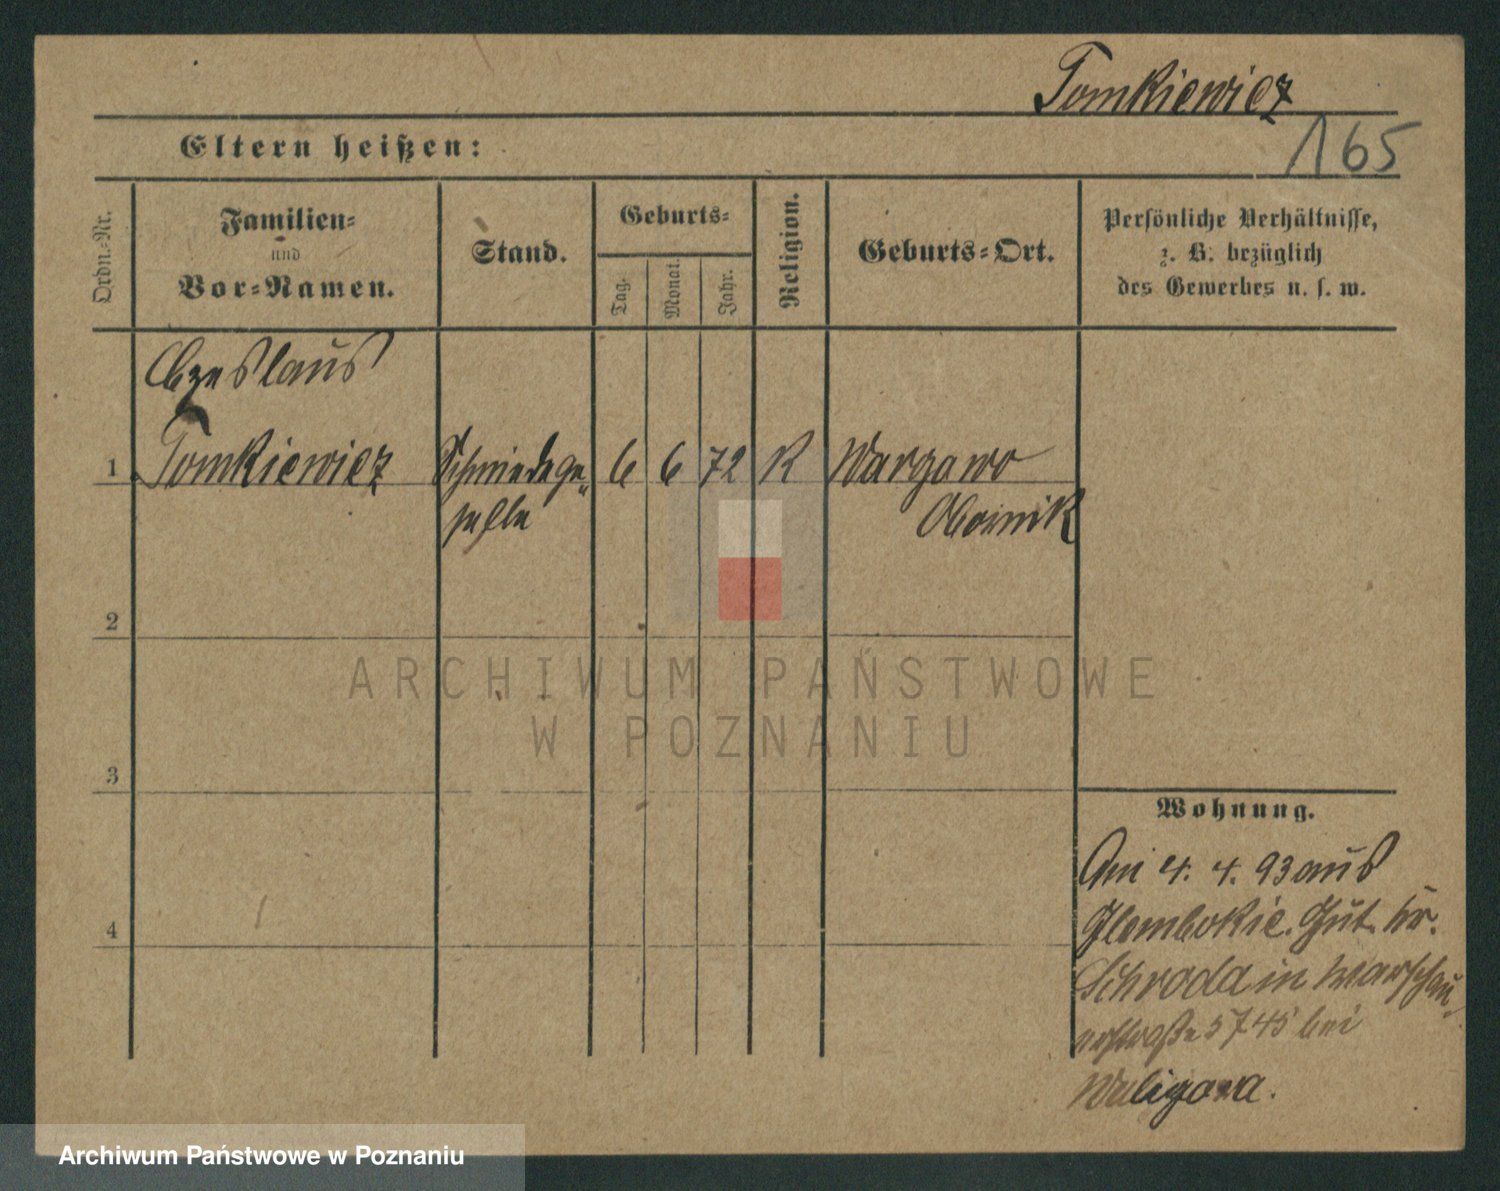 Tomkiewicz
165
Eltern heißen:
Ordn.-Nr.
Familien-
und
Vor-Namen.
Stand.
Geburts-
Tag.
Monat.
Jahr.
Religion.
Geburts-Ort.
Persönliche Verhältnisse,
z. B. bezüglich
des Gewerbes u. s. w.
Czeslaus
1 Tomkiewicz Schmiedege- 6 6 72 K Wargowo
selle Obornik
2
3
4
Wohnung.
Am 4. 4. 93 aus
Glembokie. Gut. Kr.
Schroda in Warschau-
erstraße bei
Waligora.
ARCHIWUM PAŃSTWOWE
W POZNANIU
Archiwum Państwowe w Poznaniu